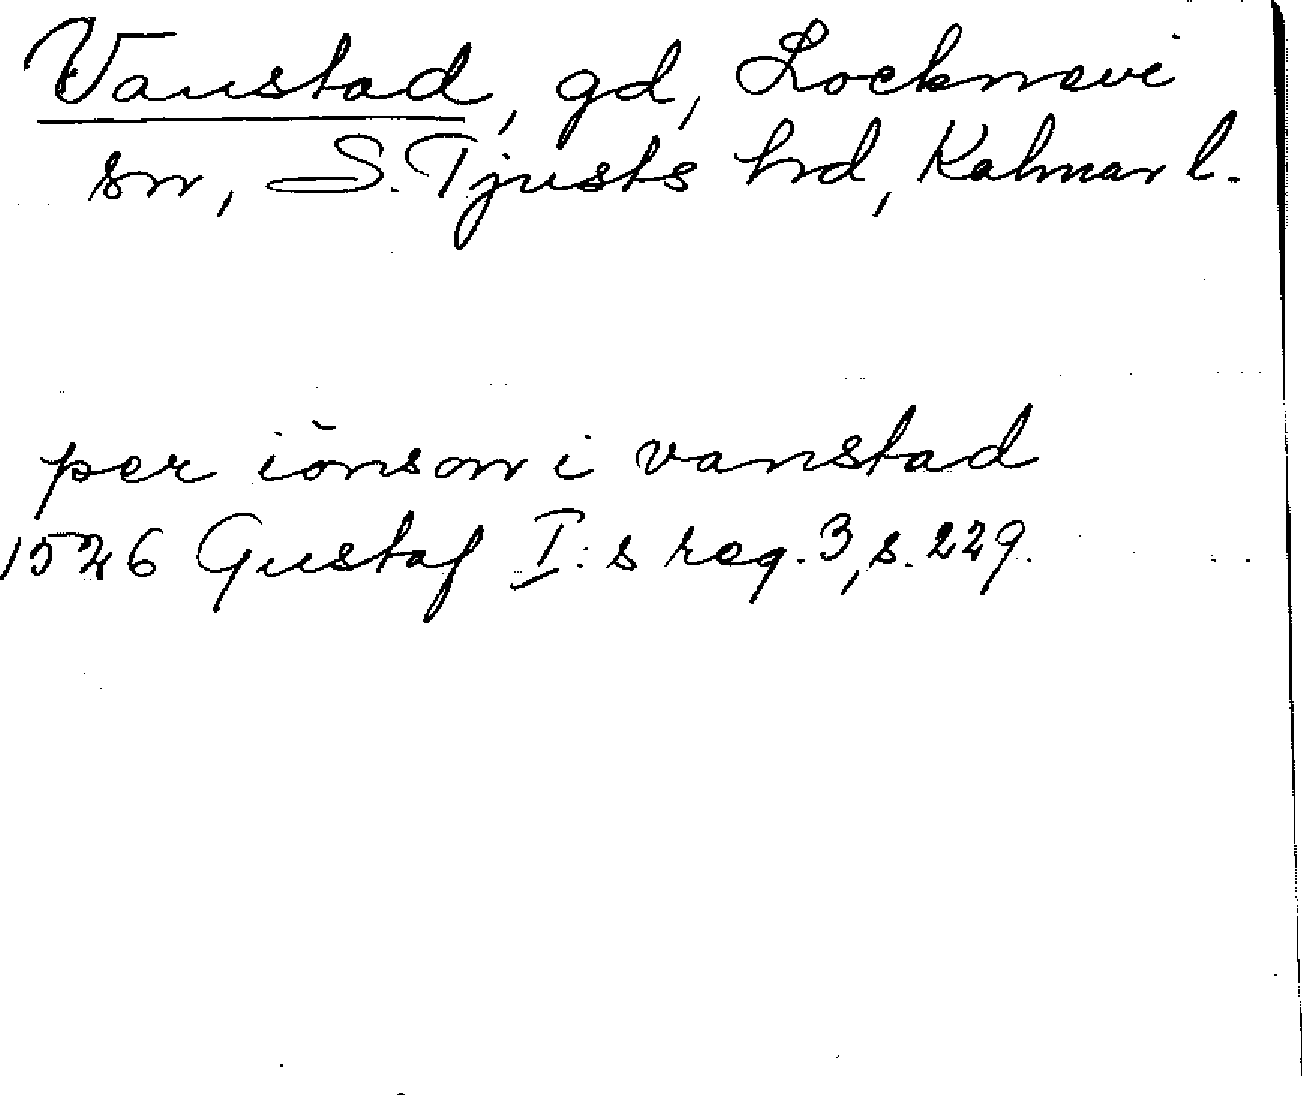 Vanstad, gd, Locknevi
sn, S. Tjusts hd, Kalmar l.
per iönson i vanstad
1526 Gustaf I:s reg. 3, s. 229.